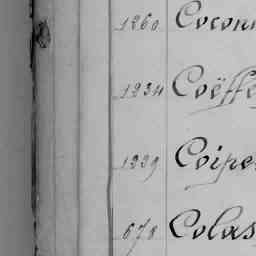 1260 Coconn
1234 Coëffe
1229 Coipe
678 Colas